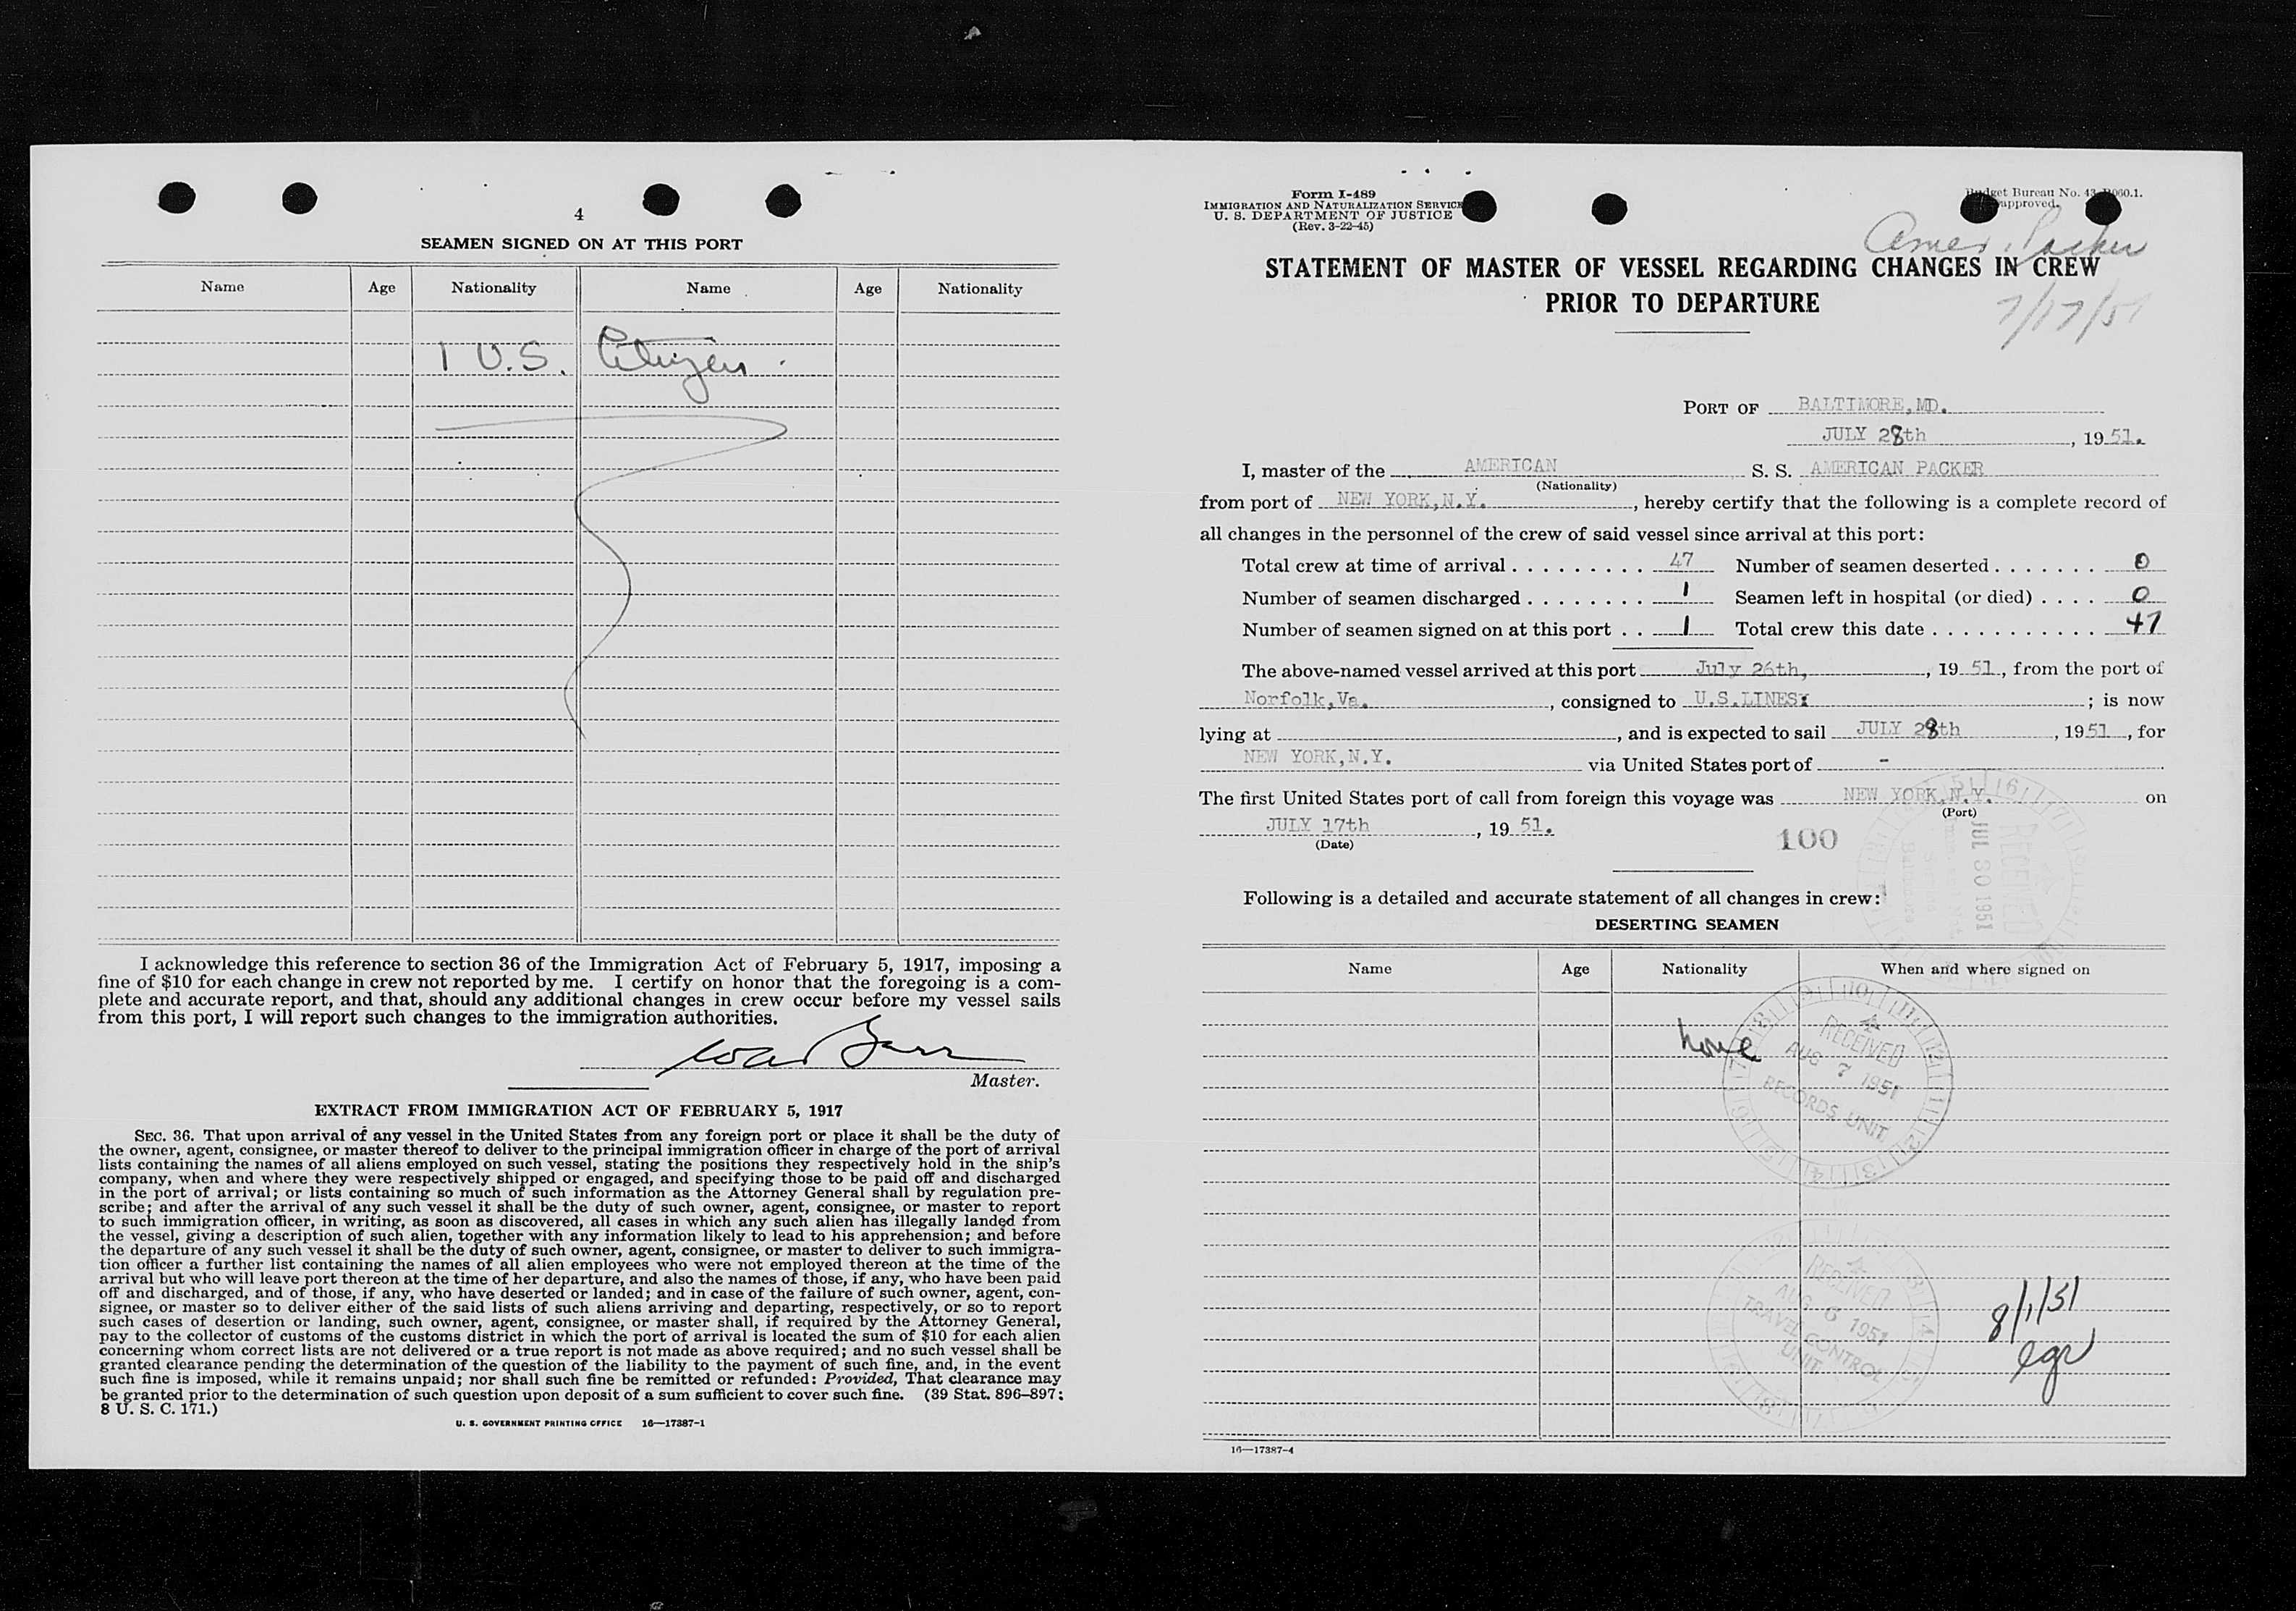 4
SEAMEN SIGNED ON AT THIS PORT
Name Age Nationality Name Age Nationality
1 U.S. Citizen.
I acknowledge this reference to section 36 of the Immigration Act of February 5, 1917, imposing a
fine of $10 for each change in crew not reported by me. I certify on honor that the foregoing is a com-
plete and accurate report, and that, should any additional changes in crew occur before my vessel sails
from this port, I will report such changes to the immigration authorities.
Master.
EXTRACT FROM IMMIGRATION ACT OF FEBRUARY 5, 1917
SEC. 36. That upon arrival of any vessel in the United States from any foreign port or place it shall be the duty of
the owner, agent, consignee, or master thereof to deliver to the principal immigration officer in charge of the port of arrival
lists containing the names of all aliens employed on such vessel, stating the positions they respectively hold in the ship's
company, when and where they were respectively shipped or engaged, and specifying those to be paid off and discharged
in the port of arrival; or lists containing so much of such information as the Attorney General shall by regulation pre-
scribe; and after the arrival of any such vessel it shall be the duty of such owner, agent, consignee, or master to report
to such immigration officer, in writing, as soon as discovered, all cases in which any such alien has illegally landed from
the vessel, giving a description of such alien, together with any information likely to lead to his apprehension; and before
the departure of any such vessel it shall be the duty of such owner, agent, consignee, or master to deliver to such immigra-
tion officer a further list containing the names of all alien employees who were not employed thereon at the time of the
arrival but who will leave port thereon at the time of her departure, and also the names of those, if any, who have been paid
off and discharged, and of those, if any, who have deserted or landed; and in case of the failure of such owner, agent, con-
signee, or master so to deliver either of the said lists of such aliens arriving and departing, respectively, or so to report
such cases of desertion or landing, such owner, agent, consignee, or master shall, if required by the Attorney General,
pay to the collector of customs of the customs district in which the port of arrival is located the sum of $10 for each alien
concerning whom correct lists are not delivered or a true report is not made as above required; and no such vessel shall be
granted clearance pending the determination of the question of the liability to the payment of such fine, and, in the event
such fine is imposed, while it remains unpaid; nor shall such fine be remitted or refunded: Provided, That clearance may
be granted prior to the determination of such question upon deposit of a sum sufficient to cover such fine. (39 Stat. 896-897;
8 U. S. C. 171.)
U. S. GOVERNMENT PRINTING OFFICE 16—17387-1
Form I-489
IMMIGRATION AND NATURALIZATION SERVICE
U. S. DEPARTMENT OF JUSTICE
(Rev. 3-22-45)
Budget Bureau No. 43-R060.1.
approved.
Amer. Packer
STATEMENT OF MASTER OF VESSEL REGARDING CHANGES IN CREW
PRIOR TO DEPARTURE
7/17/51
PORT OF BALTIMORE, MD.
JULY 28th, 1951.
I, master of the AMERICAN S. S. AMERICAN PACKER
(Nationality)
from port of NEW YORK, N.Y., hereby certify that the following is a complete record of
all changes in the personnel of the crew of said vessel since arrival at this port:
Total crew at time of arrival . . . . . . . . . 47 Number of seamen deserted . . . . . . . 0
Number of seamen discharged . . . . . . . . 1 Seamen left in hospital (or died) . . . . 0
Number of seamen signed on at this port . . 1 Total crew this date . . . . . . . . . . . 47
The above-named vessel arrived at this port July 26th, 1951, from the port of
Norfolk, Va., consigned to U.S.LINES; is now
lying at , and is expected to sail JULY 28th, 1951, for
NEW YORK, N.Y. via United States port of -
The first United States port of call from foreign this voyage was NEW YORK, N.Y. on
(Port)
JULY 17th, 19 51.
(Date)
100
RECEIVED
JUL 30 1951
Baltimore
Following is a detailed and accurate statement of all changes in crew:
DESERTING SEAMEN
Name Age Nationality When and where signed on
None
RECEIVED
AUG 7 1951
RECORDS UNIT
RECEIVED
AUG 6 1951
TRAVEL CONTROL
UNIT
8/1/51
egr
16—17387-4